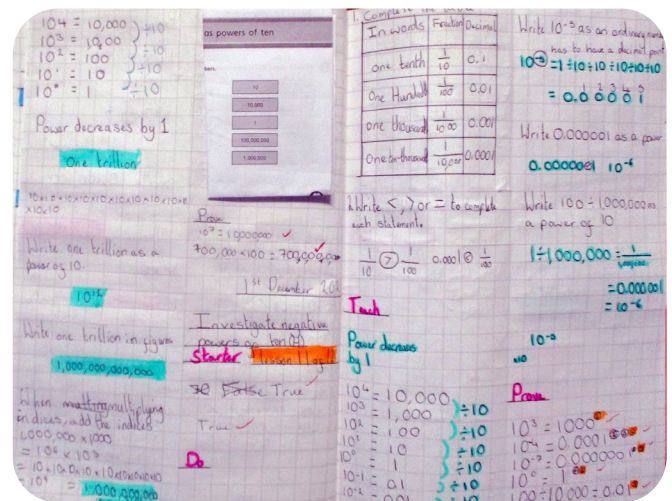 10⁴ = 10,000
10³ = 10,00
10² = 100
10¹ = 10
10⁰ = 1
÷10
÷10
÷10
÷10
Power decreases by 1
One trillion
×10×10
Write one trillion as a
power of 10.
10¹²
Write one trillion in figures
1,000,000,000,000
When multiplying
indices, add the indices
1,000,000 × 1000
= 10⁶ × 10³
= 1,000,000,000
as powers of ten
10
10,000
1
100,000,000
1,000,000
Prove
700,000 × 100 =
1st December
Investigate negative
powers of ten (H)
Starter
lesson 1 of
False True
True
Do
1. Complete the table
In words Fraction Decimal
one tenth 1/10 0.1
One Hundredth 1/100 0.01
one thousandth 1/1000 0.001
One ten-thousandth 1/10,000 0.0001
Write <, > or = to complete
each statement.
1/10 > 1/100 0.0001 < 1/100
Teach
Power decreases
by 1
10⁴ = 10,000
10³ = 1,000
10² = 100
10¹ = 10
10⁰ = 1
10⁻¹ = 0.1
10⁻² = 0.01
÷10
÷10
÷10
÷10
÷10
÷10
Write 10⁻⁵ as an ordinary number
has to have a decimal point
10⁻⁵ = 1÷10÷10÷10÷10÷10
1 2 3 4 5
= 0.00001
Write 0.000001 as a power
0.000001 10⁻⁶
Write 100 ÷ 1,000,000 as
a power of 10
1÷1,000,000 = 1/1,000,000
= 0.000001
= 10⁻⁶
Prove
10³ = 1000
10⁻⁴ = 0.0001
10⁻⁷ = 0.0000001